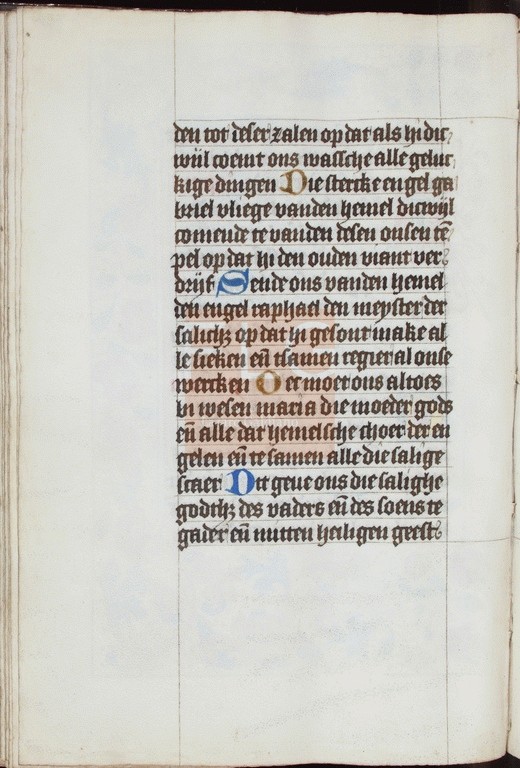 den tot deser zalen op dat als hi dic
wijl coemt ons wassche alle geluc
kige dingen Die stercke engel ga
briel vliege vanden hemel dicwijl
comende te vanden desen onsen tē
pel op dat hi den ouden viant ver
drijf Sende ons vanden hemel
den engel raphael den meyster der
salich₃ op dat hi gesont make al
le sieken eñ tsamen regier al onse
wercken Oec moet ons altoes
bi wesen maria die moeder gods
eñ alle dat hemelsche choer der en
gelen eñ te samen alle die salige
scaer Dit geue ons die salighe
godth₃ des vaders eñ des soens te
gader eñ mitten heiligen geest